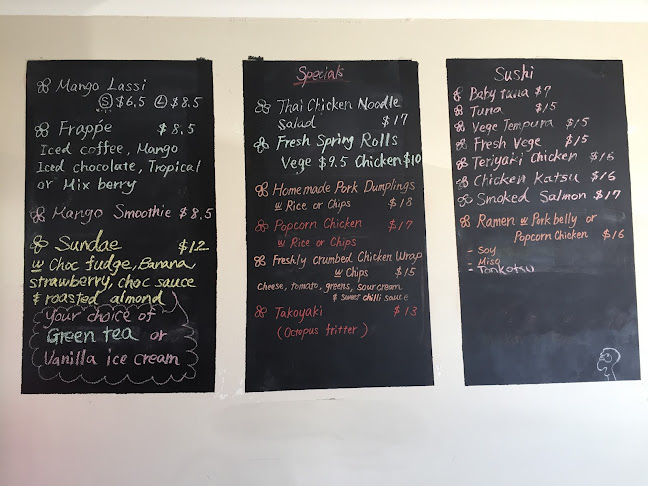 Mango Lassi
S $6.5 L $8.5
Frappe $8.5
Iced coffee, Mango
Iced chocolate, Tropical
or Mix berry
Mango Smoothie $8.5
Sundae $12
w Choc fudge, Banana
strawberry, choc sauce
& roasted almond
Your choice of
Green tea or
Vanilla ice cream
Specials
Thai Chicken Noodle
Salad $17
Fresh Spring Rolls
Vege $9.5 Chicken $10
Homemade Pork Dumplings
w Rice or Chips $18
Popcorn Chicken $17
w Rice or Chips
Freshly crumbed Chicken Wrap
w Chips $15
Cheese, tomato, greens, sour cream
& sweet chilli sauce
Takoyaki $13
(Octopus fritter)
Sushi
Baby tuna $7
Tuna $15
Vege Tempura $15
Fresh Vege $15
Teriyaki Chicken $16
Chicken Katsu $16
Smoked Salmon $17
Ramen w Pork belly or
Popcorn Chicken $16
- Soy
- Miso
- Tonkotsu